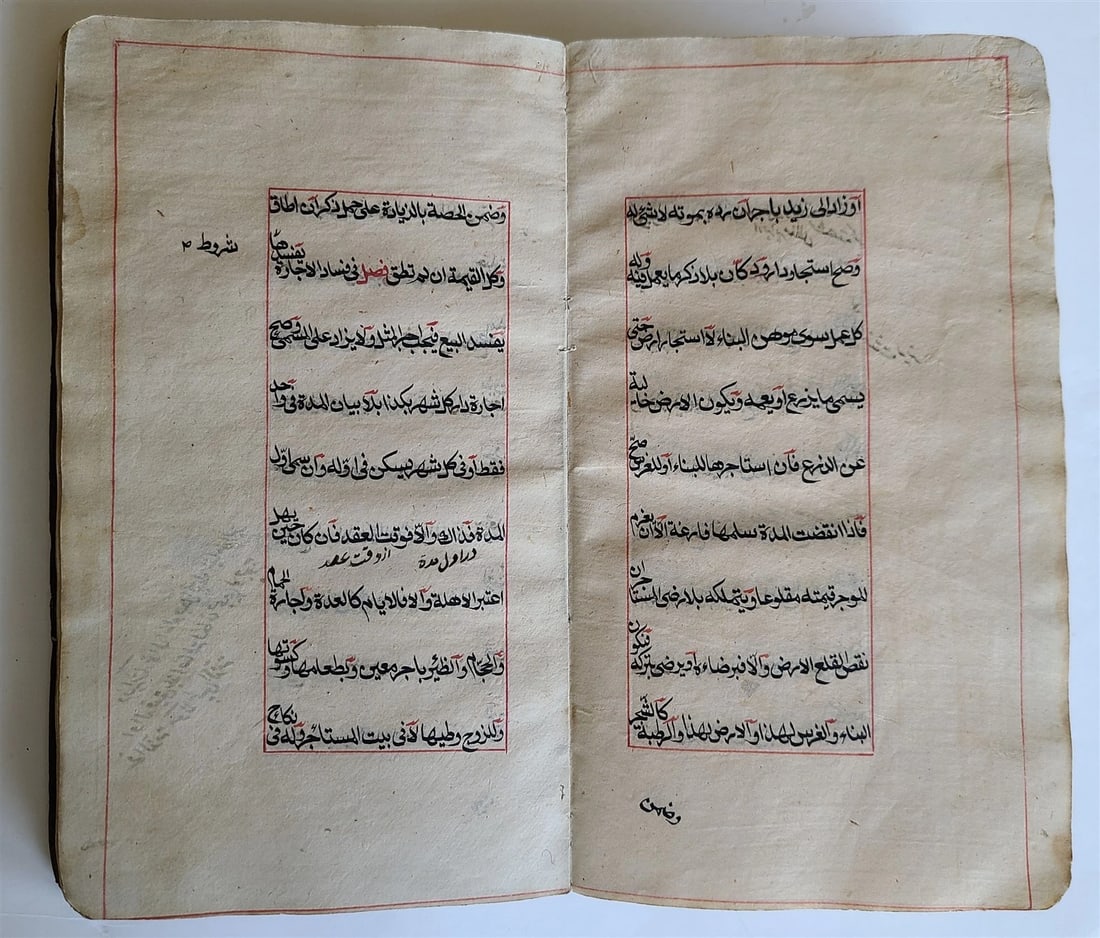 او زاد الی زید باجران رده بموته لا شئ له
وصح استجار دار ودکان بلا ذکر ما یعمل فیه وله
کل عمل سوی موهن البناء لا استجار ارض حتی
یسمی ما یزرع او یعمه ویکون الارض خالیة
عن الزرع فان استاجرها للبناء او للغرس صح
فاذا انقضت المدة سلمها فارغة الا ان یغرم
للموجر قیمته مقلوعا ویتملکه بلا رضی المستاجر ان
نقص القلع الارض والا فبرضاه او یرضی بترکه فیکون
البناء والغرس لهذا والارض لهذا والرطبة کالشجر
وضمن
وضمن الحصة بالزیادة علی حمل ذکر ان اطاق
وکل القیمة ان لم تطق فصل فی فساد الاجارة یفسدها
شروط
یفسد البیع فیجب اجر المثل ولا یزاد علی المسمی وصح
اجارة دار کل شهر بکذا بلا بیان المدة فی واحد
فقط او فی کل شهر یسکن فی اوله وان سمی اول
المدة فذاک والا فوقت العقد فان کان حین یهل
در اول مدة از وقت عقد
اعتبر الاهلة والا فالایام کالعدة واجارة الحمام
والحجام والظئر باجر معین وبطعامها وکسوتها
وللزوج وطیها لا فی بیت المستاجر وله فی نکاح